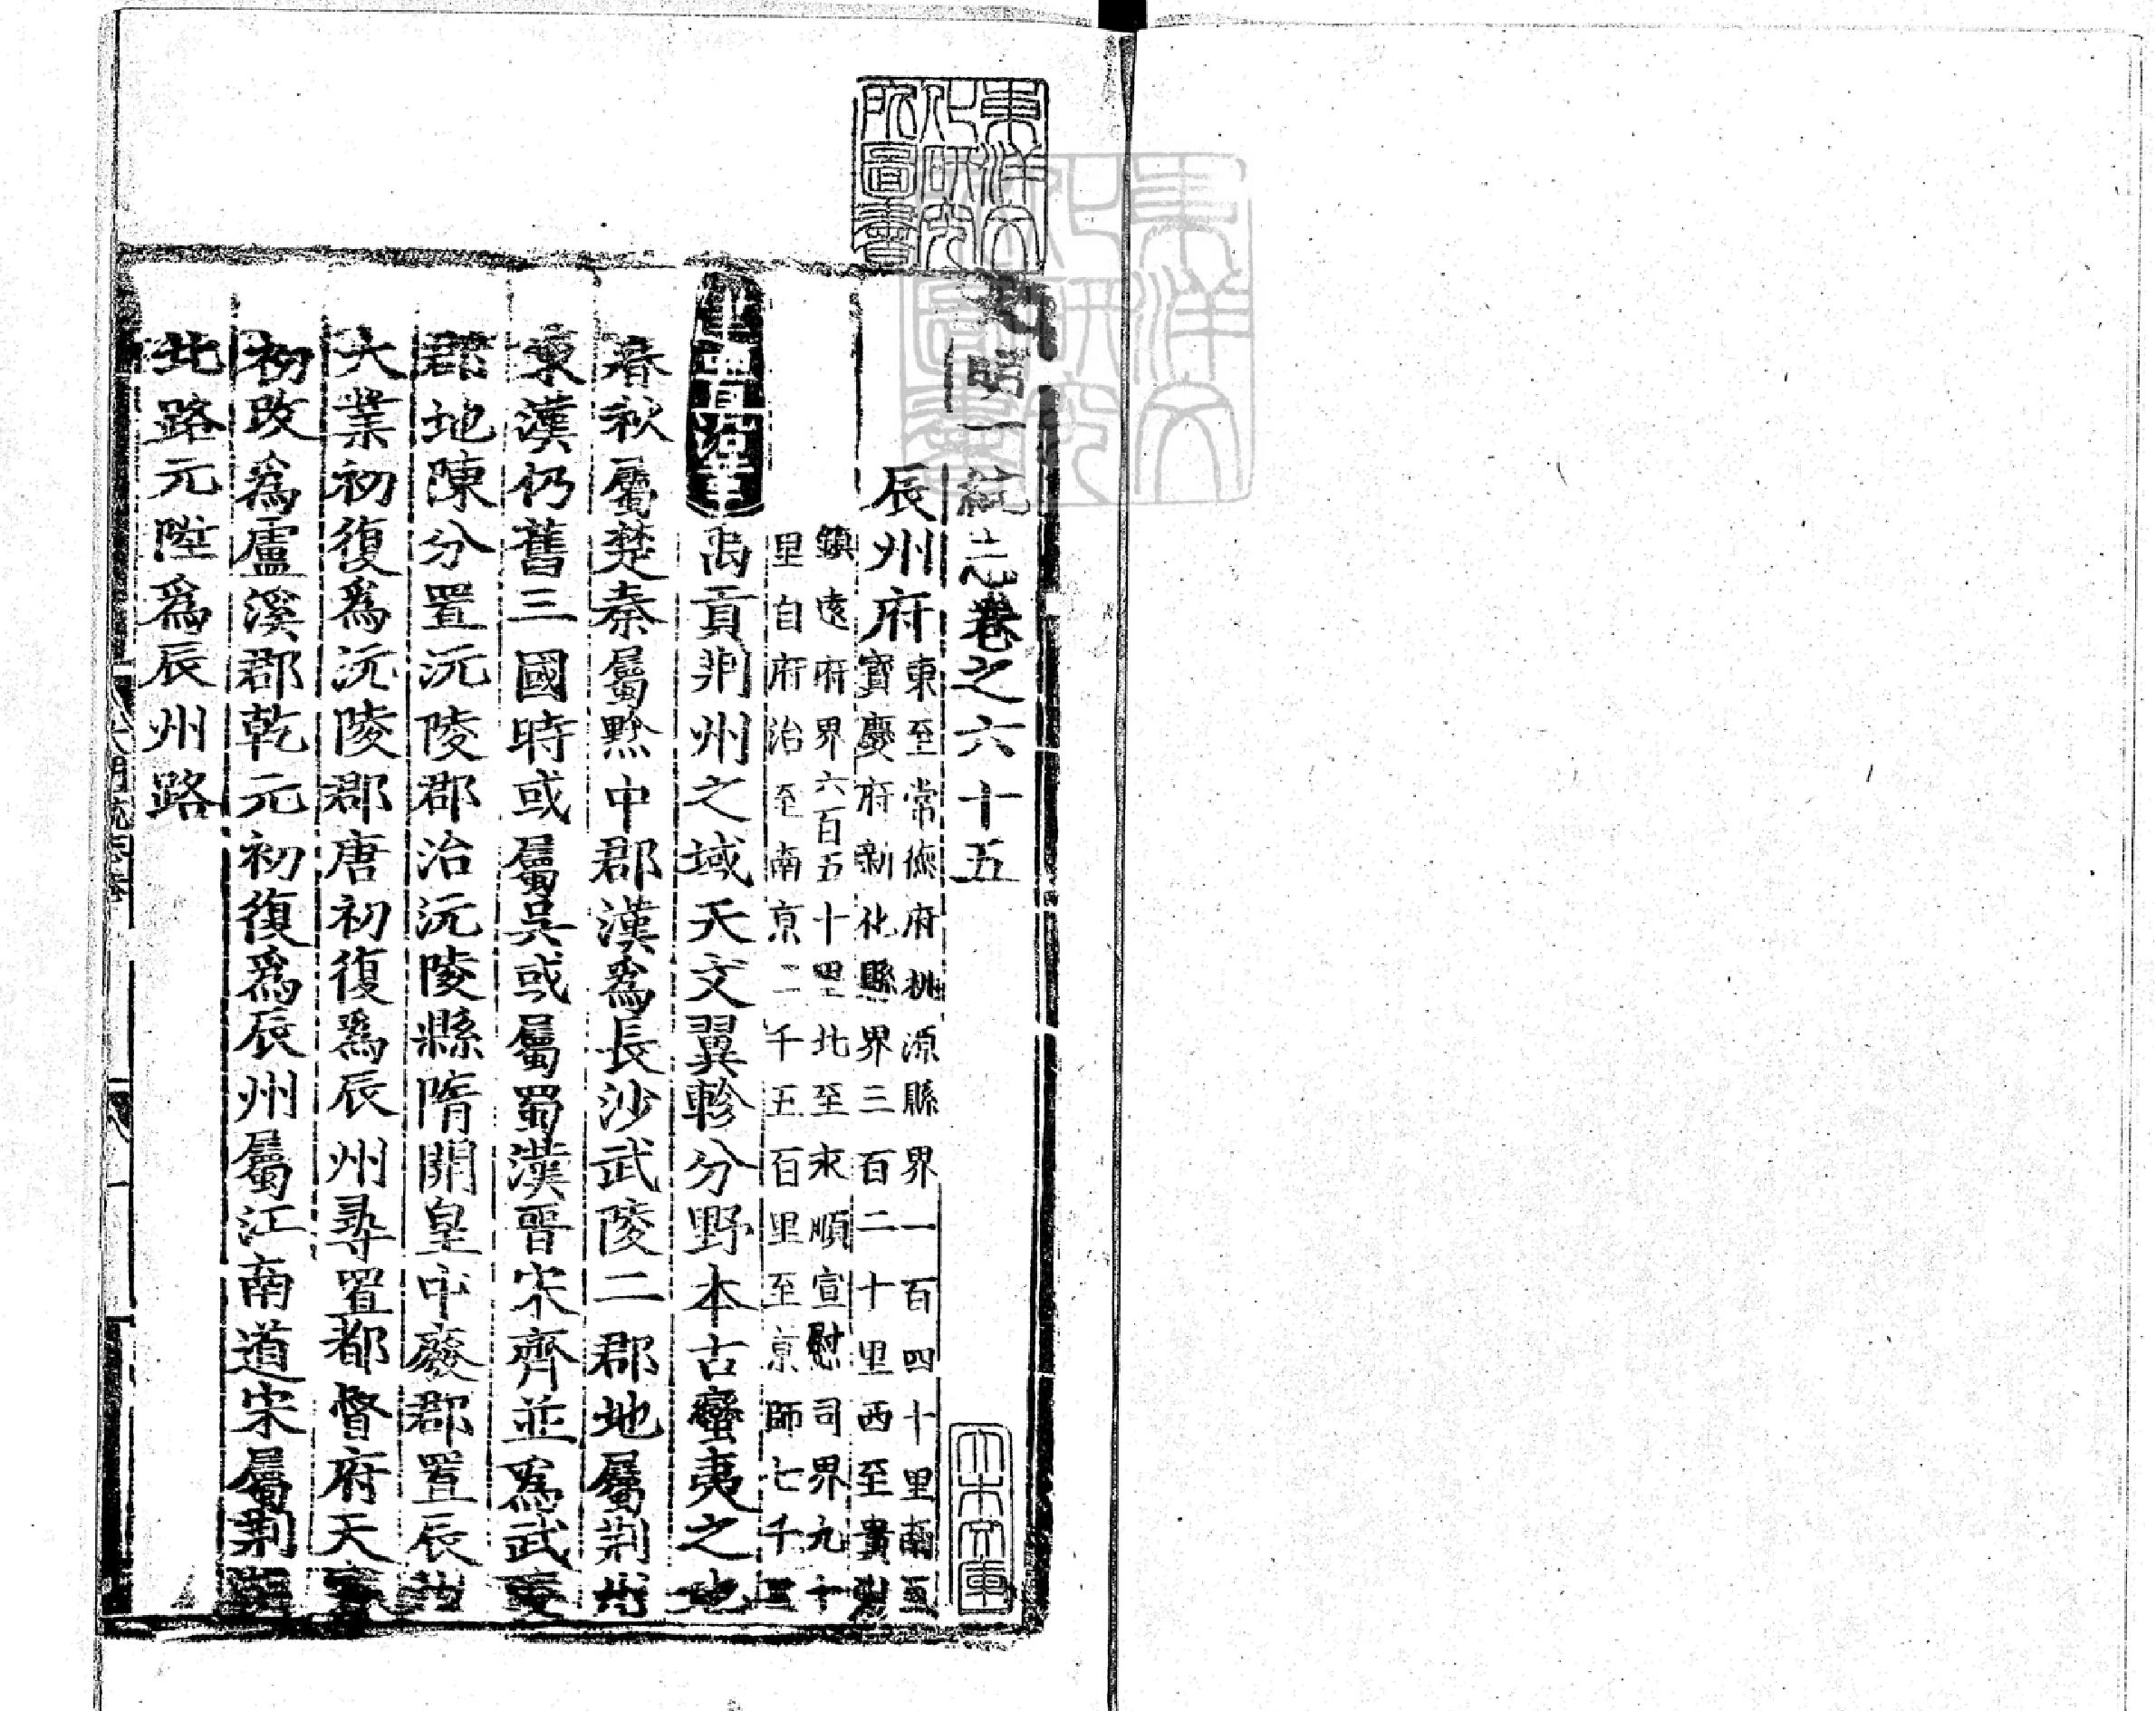 東洋文
化研究
所圖書
大明一統志卷之六十五
大木文庫
辰州府
東至常德府桃源縣界一百四十里南至
寶慶府新化縣界三百二十里西至貴州
鎮遠府界六百五十里北至永順宣慰司界九十
里自府治至南京二千五百里至京師七千三
建置沿革
禹貢荆州之域天文翼軫分野本古蠻夷之地
春秋屬楚秦屬黔中郡漢爲長沙武陵二郡地屬荆州
東漢仍舊三國時或屬吳或屬蜀漢晉宋齊並爲武陵
郡地陳分置沅陵郡治沅陵縣隋開皇中廢郡置辰州
大業初復爲沅陵郡唐初復爲辰州尋置都督府天寶
初改爲盧溪郡乾元初復爲辰州屬江南道宋屬荆湖
北路元陞爲辰州路
大明一統志卷
一